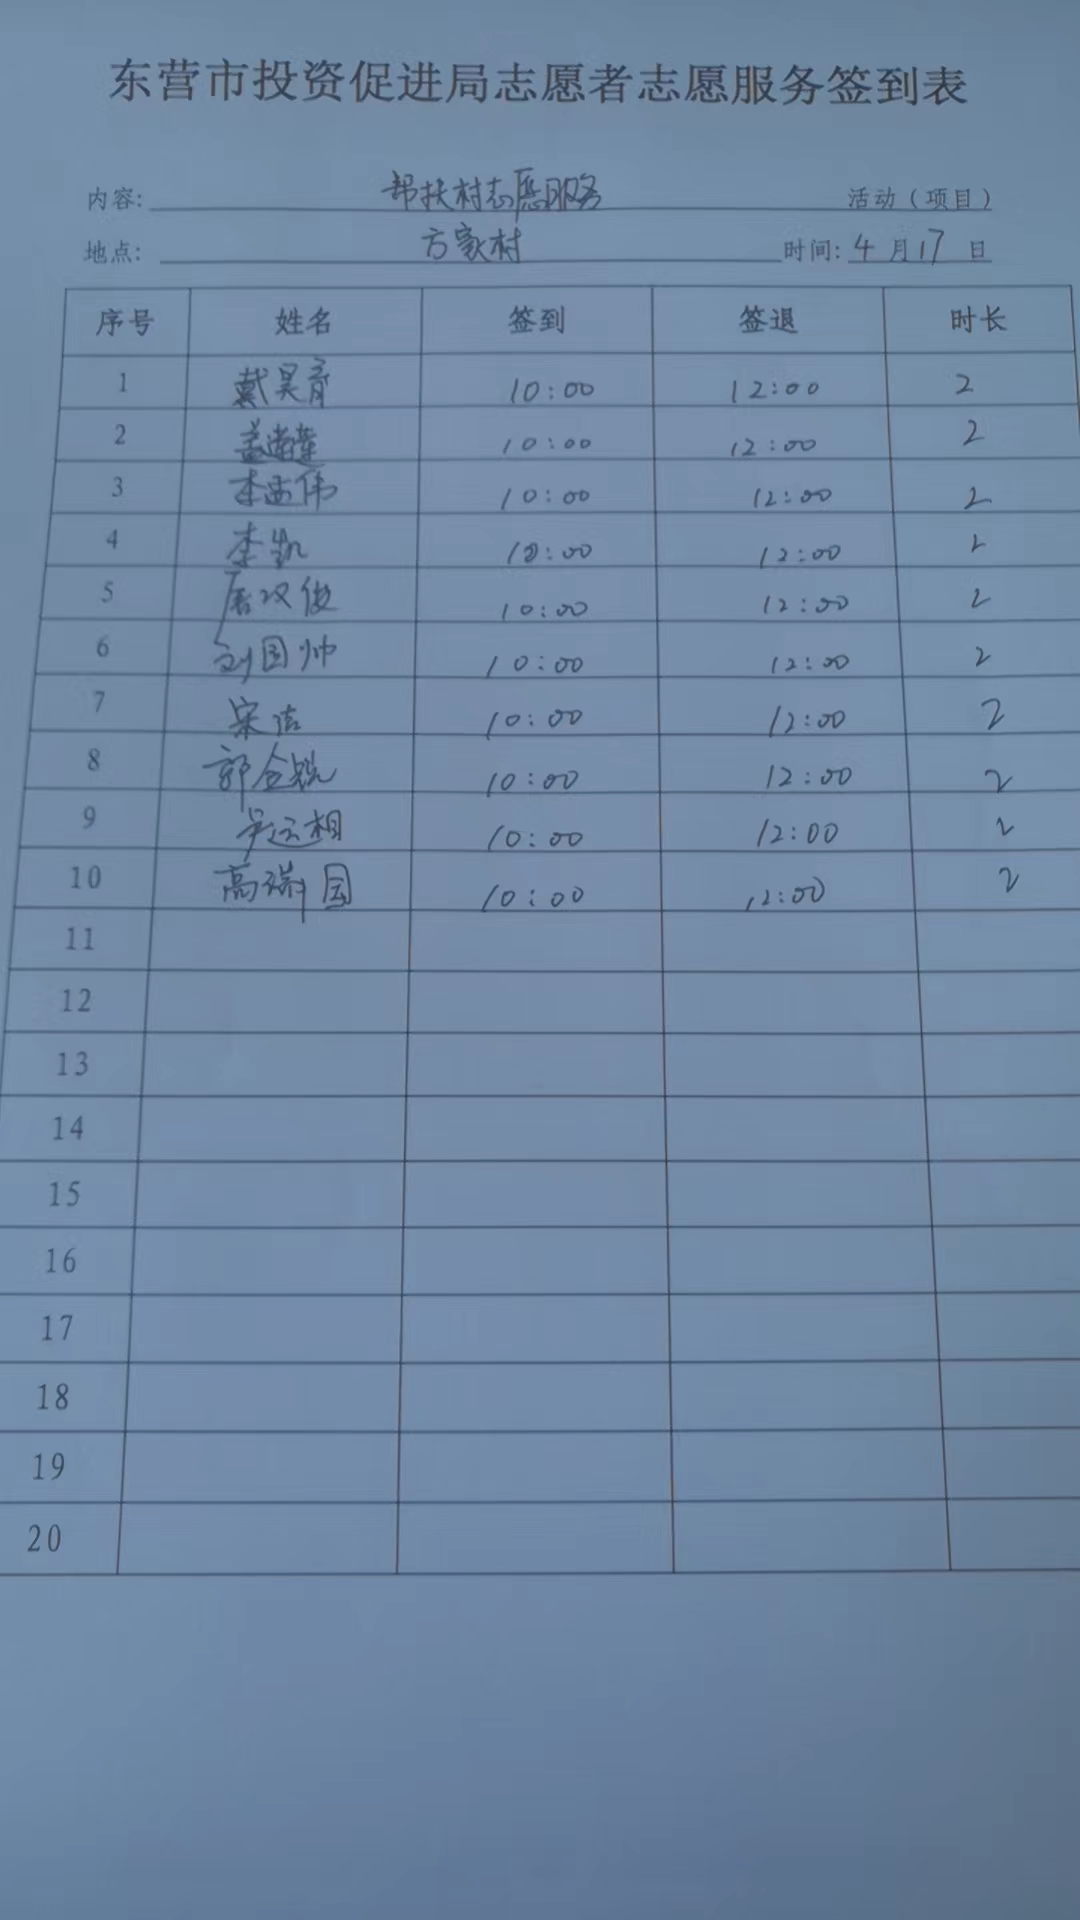 东营市投资促进局志愿者志愿服务签到表
内容: 帮扶村志愿服务 活动（项目）
地点: 方家村 时间: 4 月 17 日
序号 姓名 签到 签退 时长
1 戴昊育 10:00 12:00 2
2 10:00 12:00 2
3 李孟伟 10:00 12:00 2
4 李凯 10:00 12:00 2
5 10:00 12:00 2
6 刘国帅 10:00 12:00 2
7 宋洁 10:00 12:00 2
8 郭金锐 10:00 12:00 2
9 吴运相 10:00 12:00 2
10 高瑞国 10:00 12:00 2
11
12
13
14
15
16
17
18
19
20